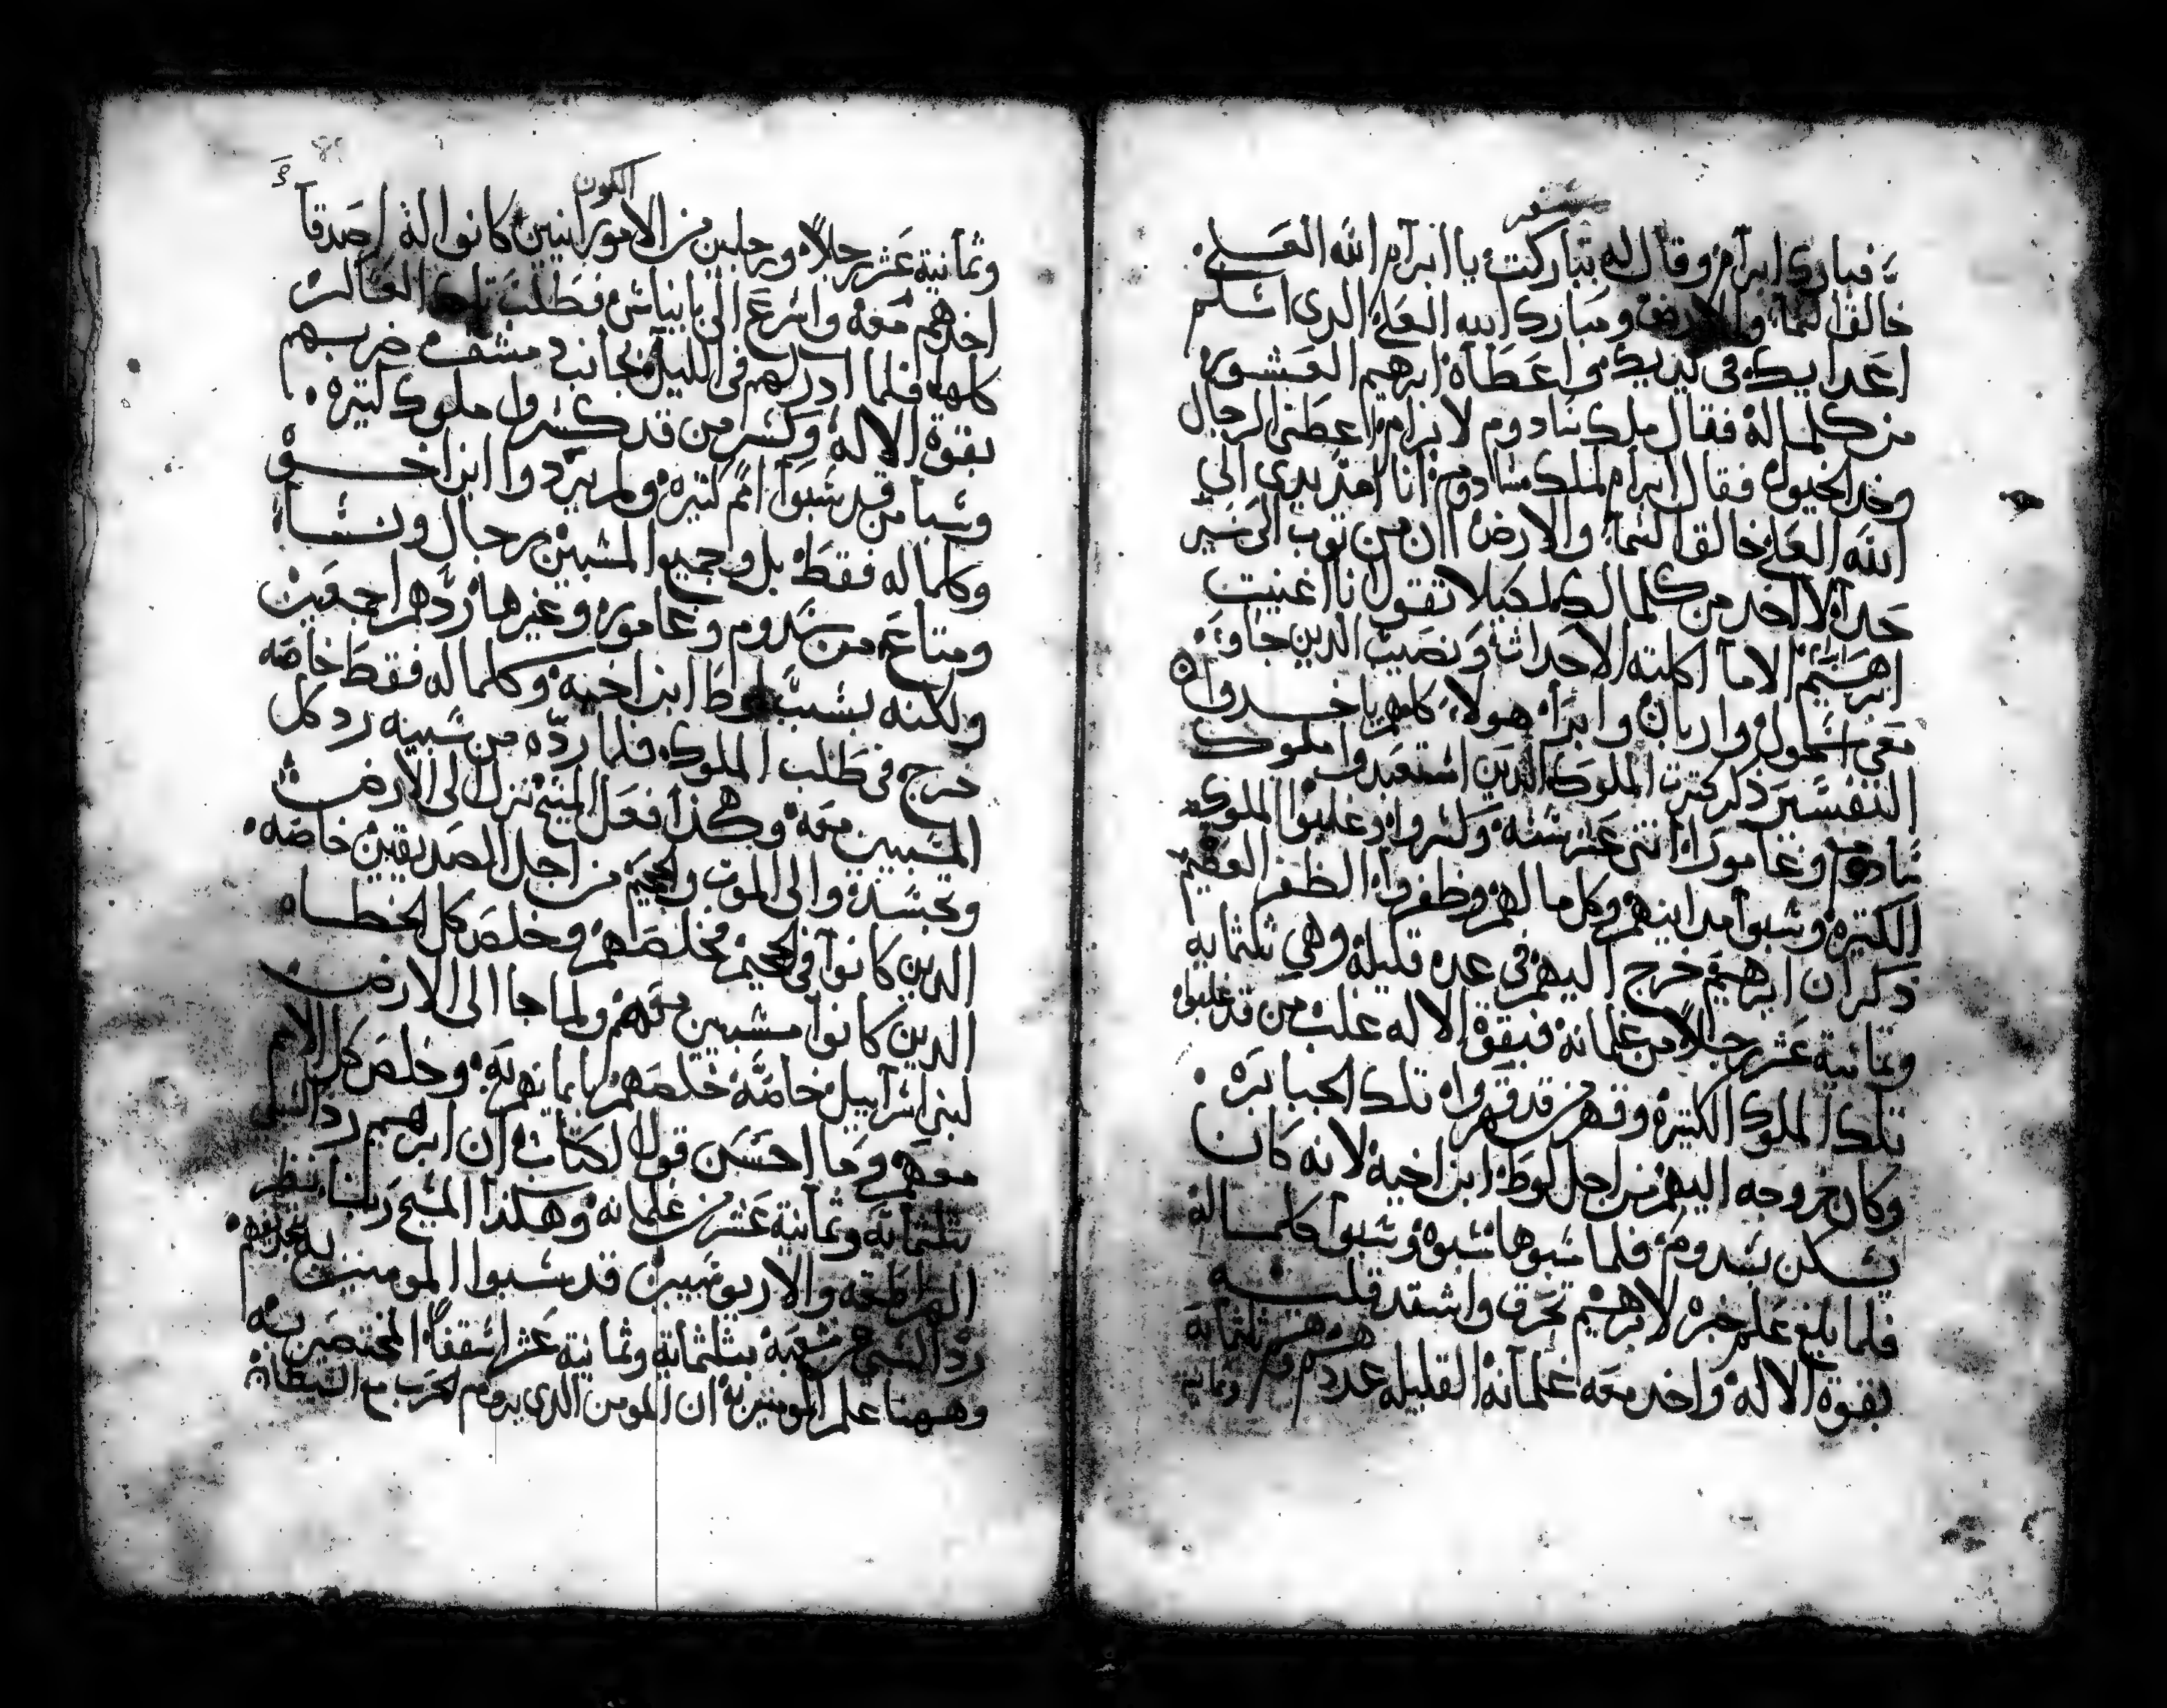 فبارك ابرام وقال له تباركت يا ابرام الله العلي
خالق السما والارض ومبارك ابيه العلي الدي اسلم
اعدايك في يديك واعطاه ابرهيم العشور
من كلماله فقال ملك سادوم لابرام اعطني الرجال
وخد الخيول فقال ابرام لملك سادوم انا امد يدي الي
الله العلي خالق السما والارض ان من توب الي سير
حدا لا اخد من كلمالك لكيلا تقول انا اغنيت
ابرهيم الا ما اكلته الاحداث ونصيب الدين جاو
معي اسكول واربان وابرا هولا كلهم ياخدوا
التفسير ذكر كترت الملوك الدين استعبدوا ملوك
سادوم وغامورا اتني عشر سنه وكسروا وغلبوا الملوك
الكتيره وسبوا مداينهم وكل ما لهم وظفروا الظفر العظيم
دكر ان ابرهيم خرج اليهم في عده قليله وهي تلتمايه
وتمانية عشر رجلا من غلمانه فبقوة الاله غلب من قد غلبوا
تلك الملوك الكتيره وقهر من قد قهروا تلك الجبابره
وكان خروجه اليهم من اجل لوط ابن اخيه لانه كان
يسكن سدوم فلما سبوها سبوه وسبوا كلماله
فلما بلغ علم خبره لابرهيم تحرق واشتد قلبه
بقوة الاله واخد معه غلمانه القليله عددهم تلتمايه وتمانيه
الكون
وثمانية عشر رجلا ورجلين من الامورانيين كانوا له اصدقا
اخدهم معه واسرع الي بانياس فطلب تلك العساكر
كلها فلما ادركهم في الليل بجانب دمشق ضربهم
بقوة الاله وكسر من قد كسروا ملوك كتيره
وسبا من قد سبوا امم كتيره ولم يرد لوط ابن اخوه
وكلماله فقط بل وجميع المسبيين رجال ونسا
ومتاعهم من سدوم وغاموره وغيرها ردهم اجمعين
ولكنه بسبب لوط ابن اخيه وكلماله فقط خاصه
خرج في طلب الملوك فلما رده من سبيه رد كل
المسبيين معه وهكذا فعل المسيح نزل الي الارض
وتجسد والي الموت والجحيم من اجل الصديقين خاصه
الدين كانوا في الجحيم فخلصهم وخلص كل الخطاه
الدين كانوا مسبيين معهم ولما جا الي الارض
لبني اسراييل خاصه خلصهم بايمانهم به وخلص كل الامم
معهم وما احسن قول الكتاب ان ابرهيم رد السبي
بتلتمايه وثمانية عشر من غلمانه وهكذا المسيح ربنا نظر
الهراطقه والاريوسيين قد سبوا المومنين به
رد السبي من شعبه بتلثماية وثمانية عشر اسقفا المختصين به
وههنا علم المومنين به ان المومن الدي يروم الحرب مع الشيطان